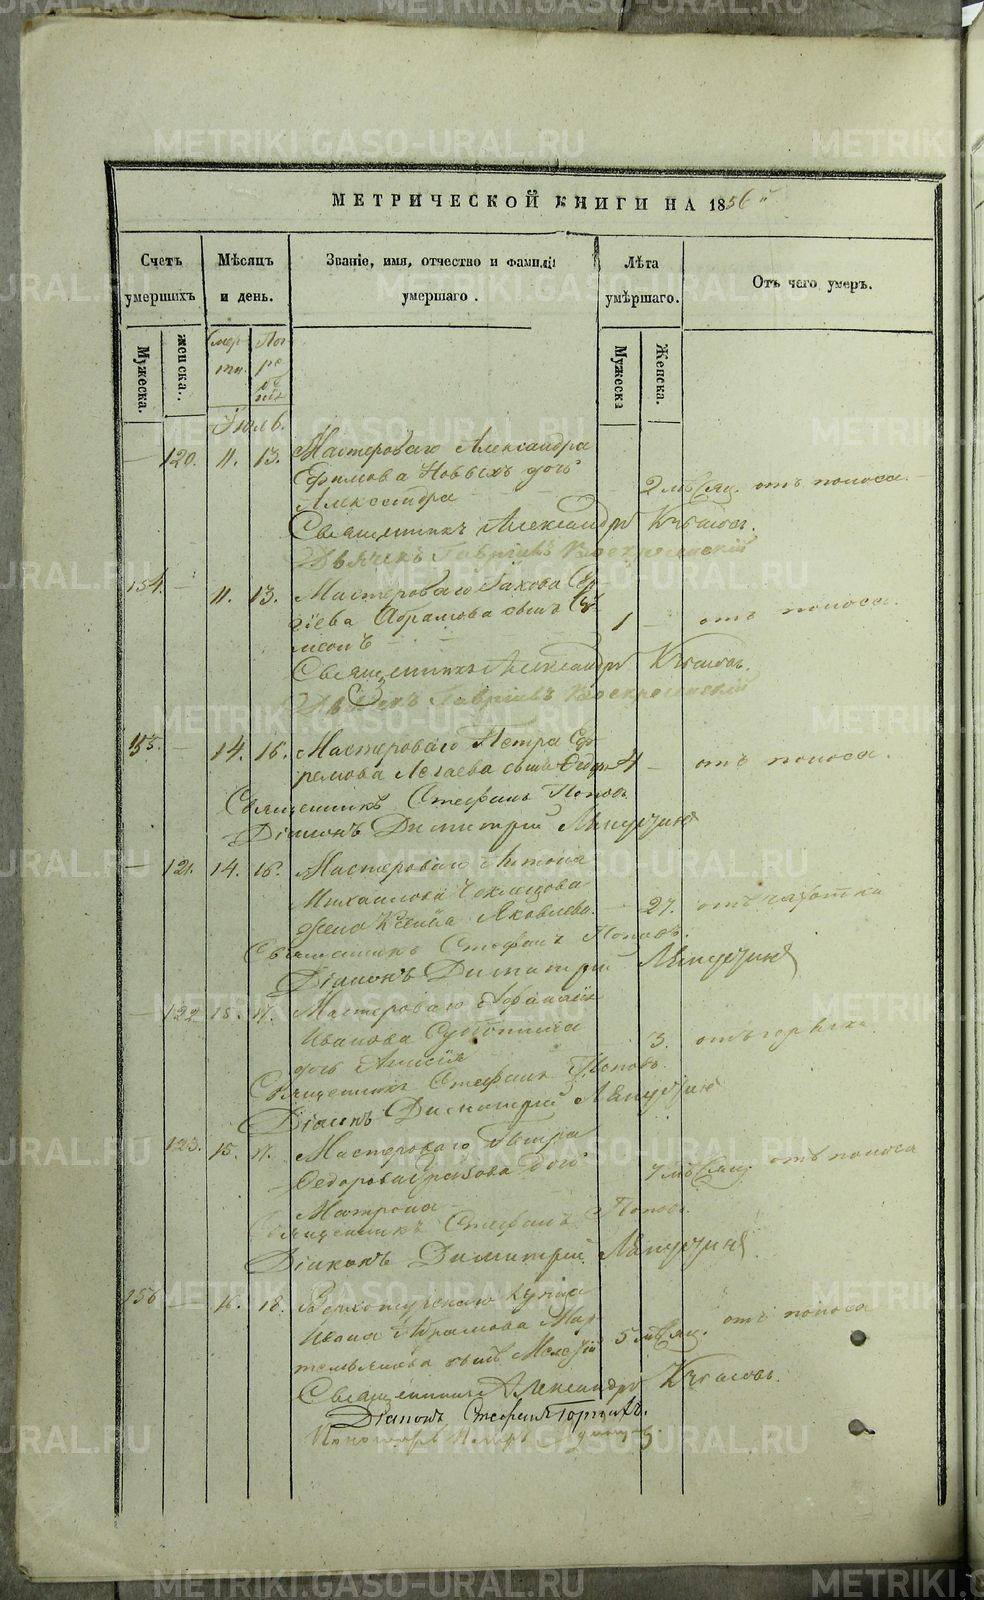 МЕТРИЧЕСКОЙ КНИГИ НА 1856й
Счетъ умершихъ
Мѣсяцъ и день.
Званіе, имя, отчество и фамилія умершаго.
Лѣта умѣршаго.
Отъ чего умеръ.
Мужеска.
женска.
Смерти
Погребенія
Мужеска
Женска.
Іюль.
— 120. 11. 13. Мастероваго Александра
Ефимова Новыхъ дочь
Александра 2 мѣсяц. отъ поноса.
Священникъ Александръ
Дьячекъ Гавріилъ Воскресенскій
154. — 11. 13. Мастероваго Іакова Сер-
гіева Абрамова сынъ Си-
меонъ 1 — отъ поноса.
Священникъ Александръ
Дьячекъ Гавріилъ Воскресенскій
155. — 14. 16. Мастероваго Петра Еф-
ремова сынъ 4 — отъ поноса.
Священникъ Стефанъ Поповъ
Діаконъ Димитрій Ляпустинъ
— 121. 14. 16. Мастероваго Антона
Михаилова
жена Ксенія Яковлева. 27. отъ чахотки
Священникъ Стефанъ Поповъ.
Діаконъ Димитрій Ляпустинъ
— 122 15. 17. Мастероваго Афанасія
Иванова
дочь Анисія 3. отъ горячки
Священникъ Стефанъ Поповъ.
Діаконъ Димитрій Ляпустинъ
123. 15. 17. Мастероваго Петра
Федорова дочь
Матрона 7 мѣсяц. отъ поноса
Священникъ Стефанъ Поповъ
Діаконъ Димитрій Ляпустинъ.
156 — 16. 18. Верхотурскаго купца
Ивана Абрамова Мар-
темьянова сынъ 5 мѣсяц. отъ поноса
Священникъ Александръ
Діаконъ Стефанъ
Пономарь
METRIKI.GASO-URAL.RU